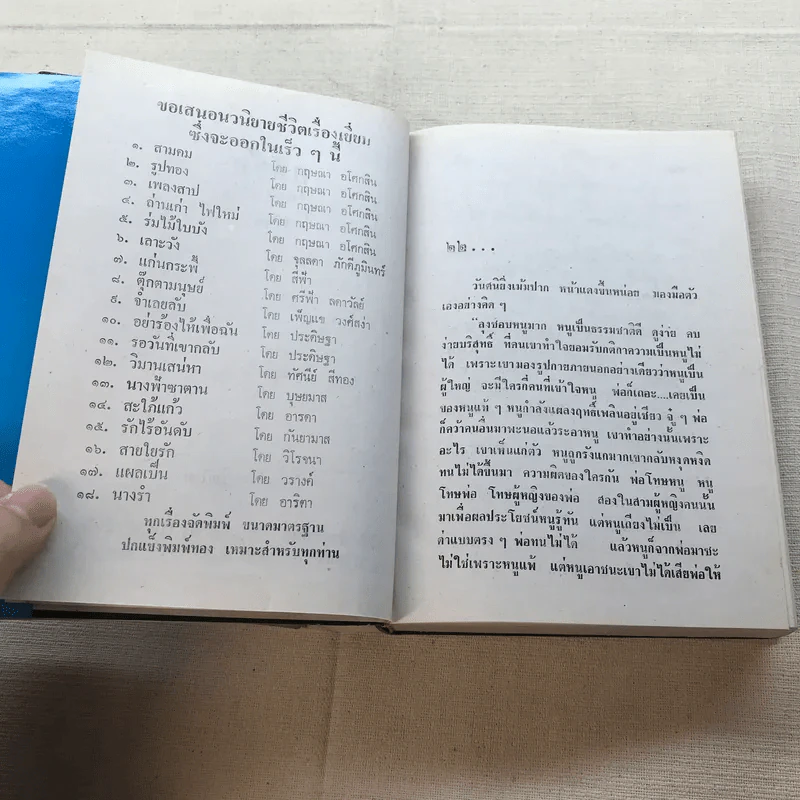 ขอเสนอนวนิยายชีวิตเรื่องเยี่ยม
ซึ่งจะออกในเร็ว ๆ นี้
๑. สามคม โดย กฤษณา อโศกสิน
๒. รูปทอง โดย กฤษณา อโศกสิน
๓. เพลงสาป โดย กฤษณา อโศกสิน
๔. ถ่านเก่า ไฟใหม่ โดย กฤษณา อโศกสิน
๕. ร่มไม้ใบบัง โดย กฤษณา อโศกสิน
๖. เลาะวัง โดย จุลลดา ภักดีภูมินทร์
๗. แก่นกระพี้ โดย สีฟ้า
๘. ตุ๊กตามนุษย์ โดย ศรีฟ้า ลดาวัลย์
๙. จำเลยลับ โดย เพ็ญแข วงศ์สง่า
๑๐. อย่าร้องไห้เพื่อฉัน โดย ประดิษฐา
๑๑. รอวันที่เขากลับ โดย ประดิษฐา
๑๒. วิมานเสน่หา โดย ทัศนีย์ สีทอง
๑๓. นางฟ้าซาตาน โดย บุษยมาส
๑๔. สะใภ้แก้ว โดย อารดา
๑๕. รักไร้อันดับ โดย กันยามาส
๑๖. สายใยรัก โดย วิโรจนา
๑๗. แผลเป็น โดย วรางค์
๑๘. นางรำ โดย อาริตา
ทุกเรื่องจัดพิมพ์ ขนาดมาตรฐาน
ปกแข็งพิมพ์ทอง เหมาะสำหรับทุกท่าน
๒๒...
วันศนิยิ่งเม้มปาก หน้าแดงขึ้นหน่อย มองมือตัว
เองอย่างคิด ๆ
“ลุงชอบหนูมาก หนูเป็นธรรมชาติดี ดูง่าย คบ
ง่ายบริสุทธิ์ ที่คนเขาทำใจยอมรับกติกาความเป็นหนูไม่
ได้ เพราะเขามองรูปกายภายนอกอย่างเดียวว่าหนูเป็น
ผู้ใหญ่ จะมีใครกี่คนที่เข้าใจหนู พ่อก็เถอะ....เคยเป็น
ของหนูแท้ ๆ หนูกำลังแผลงฤทธิ์เพลินอยู่เชียว จู่ ๆ พ่อ
ก็คว้าคนอื่นมาพะนอแล้วระอาหนู เขาทำอย่างนั้นเพราะ
อะไร เขาเห็นแก่ตัว หนูถูกรังแกมากเข้ากลับหงุดหงิด
ทนไม่ได้ขึ้นมา ความผิดของใครกัน พ่อโทษหนู หนู
โทษพ่อ โทษผู้หญิงของพ่อ สองในสามผู้หญิงคนนั้น
มาเพื่อผลประโยชน์หนูรู้ทัน แต่หนูเถียงไม่เป็น เลย
ด่าแบบตรง ๆ พ่อทนไม่ได้ แล้วหนูก็จากพ่อมาซะ
ไม่ใช่เพราะหนูแพ้ แต่หนูเอาชนะเขาไม่ได้เสียพ่อให้